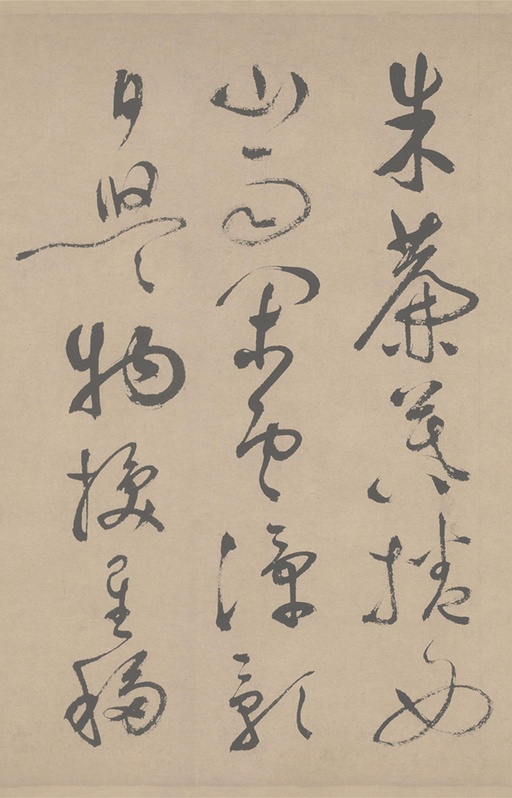 朱簾暮捲西
山雨閑雲潭影
日悠々物換星移